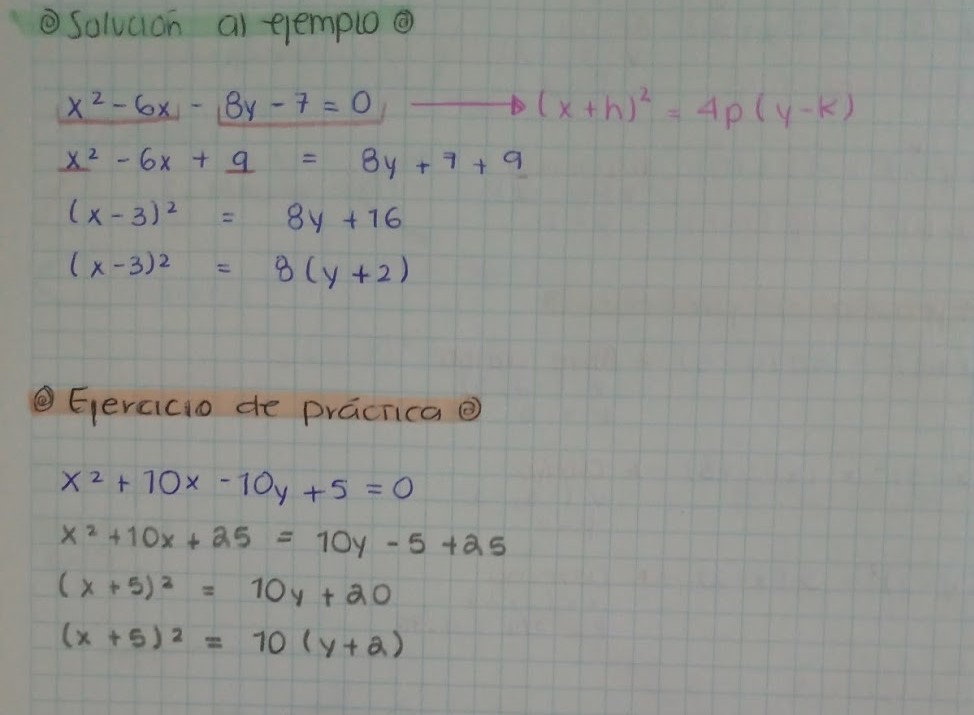 Solución al ejemplo
x² - 6x - 8y - 7 = 0 → (x+h)² = 4p(y-k)
x² - 6x + 9 = 8y + 7 + 9
(x-3)² = 8y + 16
(x-3)² = 8(y+2)
Ejercicio de práctica
x² + 10x - 10y + 5 = 0
x² + 10x + 25 = 10y - 5 + 25
(x+5)² = 10y + 20
(x+5)² = 10(y+2)